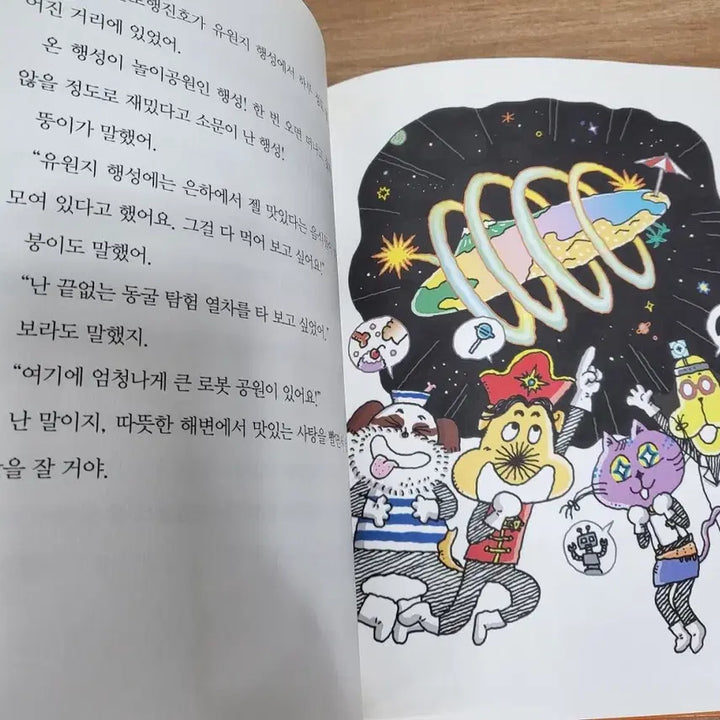 유원지 행성에서 하루
어진 거리에 있었어.
온 행성이 놀이공원인 행성! 한 번 오면
않을 정도로 재밌다고 소문이 난 행성!
뚱이가 말했어.
“유원지 행성에는 은하에서 젤 맛있다는
모여 있다고 했어요. 그걸 다 먹어 보고 싶어요!”
붕이도 말했어.
“난 끝없는 동굴 탐험 열차를 타 보고 싶었어.”
보라도 말했지.
“여기에 엄청나게 큰 로봇 공원이 있어요!”
난 말이지, 따뜻한 해변에서 맛있는 사탕을
을 잘 거야.